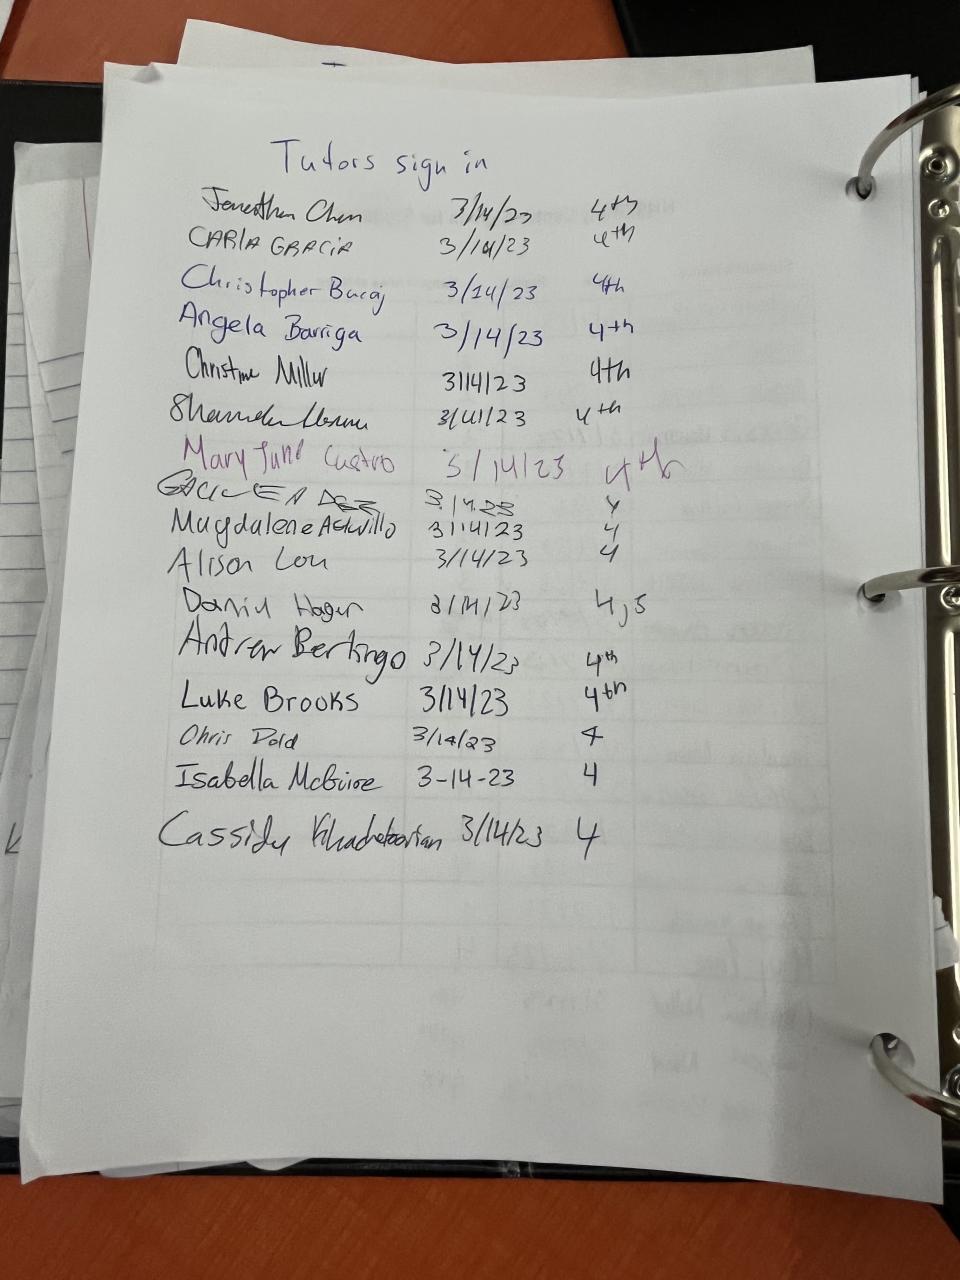 Tutors sign in
Jonathan Chen 3/14/23 4th
CARLA GRACIA 3/14/23 4th
Christopher Bucaj 3/14/23 4th
Angela Barriga 3/14/23 4th
Christine Miller 3/14/23 4th
3/14/23 4th
Mary June Castro 3/14/23 4th
3.14.23 4
Magdalene 3/14/23 4
Alison Lou 3/14/23 4
Daniel Hagen 3/14/23 4,5
Andrew Bertingo 3/14/23 4th
Luke Brooks 3/14/23 4th
Chris Dold 3/14/23 4
Isabella McGuire 3-14-23 4
Cassidy 3/14/23 4